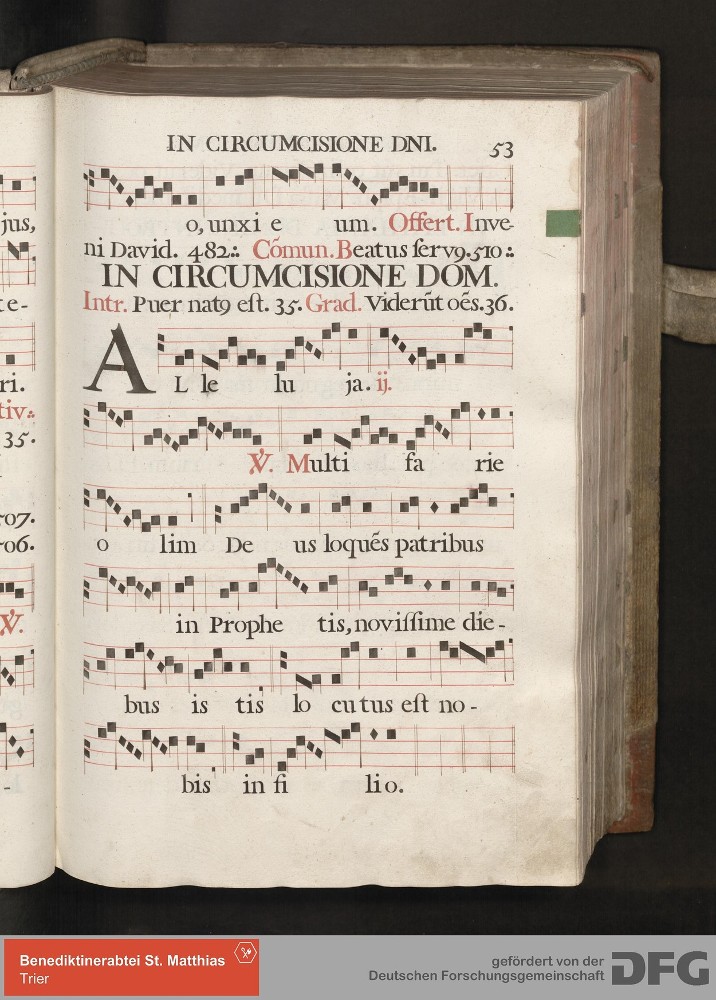 IN CIRCUMCISIONE DNI. 53
jus,
o, unxi e um. Offert. Inve-
ni David. 482.: Cõmun. Beatus ſerv9. 510.:
IN CIRCUMCISIONE DOM.
te-
Intr. Puer nat9 eſt. 35. Grad. Viderũt oẽs. 36.
ri.
ALle lu ja. ij.
tiv.:
35.
℣. Multi fa rie
507.
o lim De us loquẽs patribus
506.
℣.
in Prophe tis, noviſſime die-
bus is tis lo cutus eſt no-
-
bis in fi lio.
Benediktinerabtei St. Matthias
Trier
gefördert von der
Deutschen Forschungsgemeinschaft
DFG